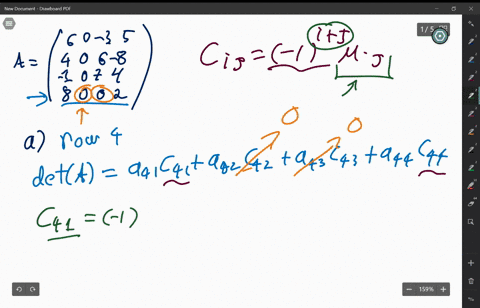 New Document - Drawboard PDF
1 / 5
A = ( 6 0 -3 5
4 0 6 -8
-1 0 7 4
8 0 0 2 )
C i J = (-1) i+J M . J
a) row 4
0 0
det(A) = a41 C41 + a42 C42 + a43 C43 + a44 C44
C41 = (-1)
159%